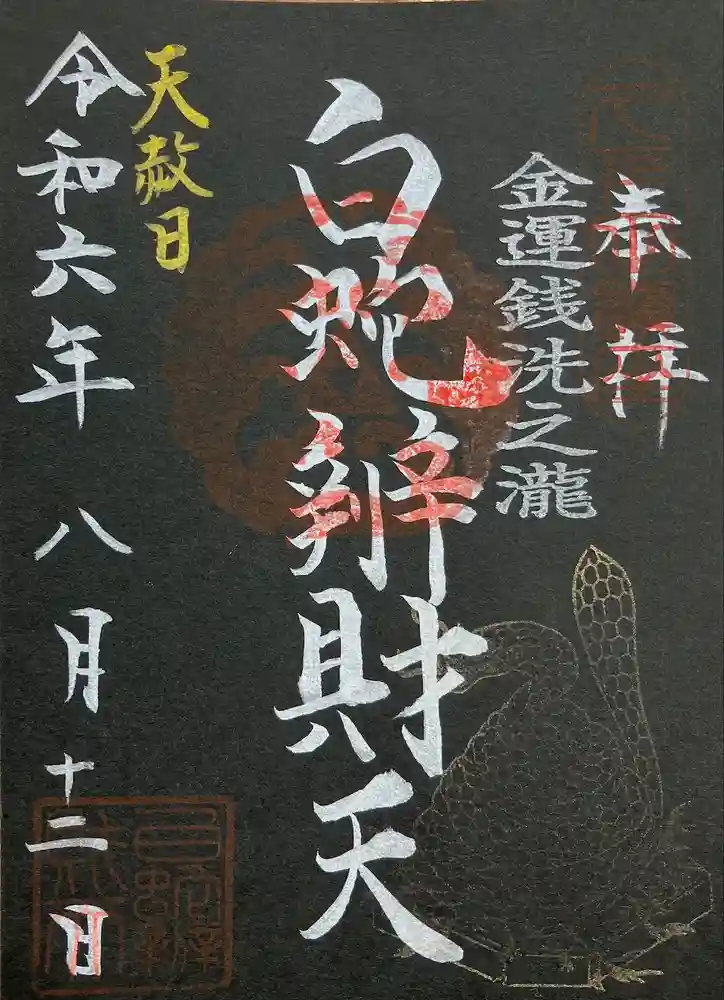 奉拝
金運銭洗之瀧
白蛇辨財天
天赦日
令和六年 八月十二日